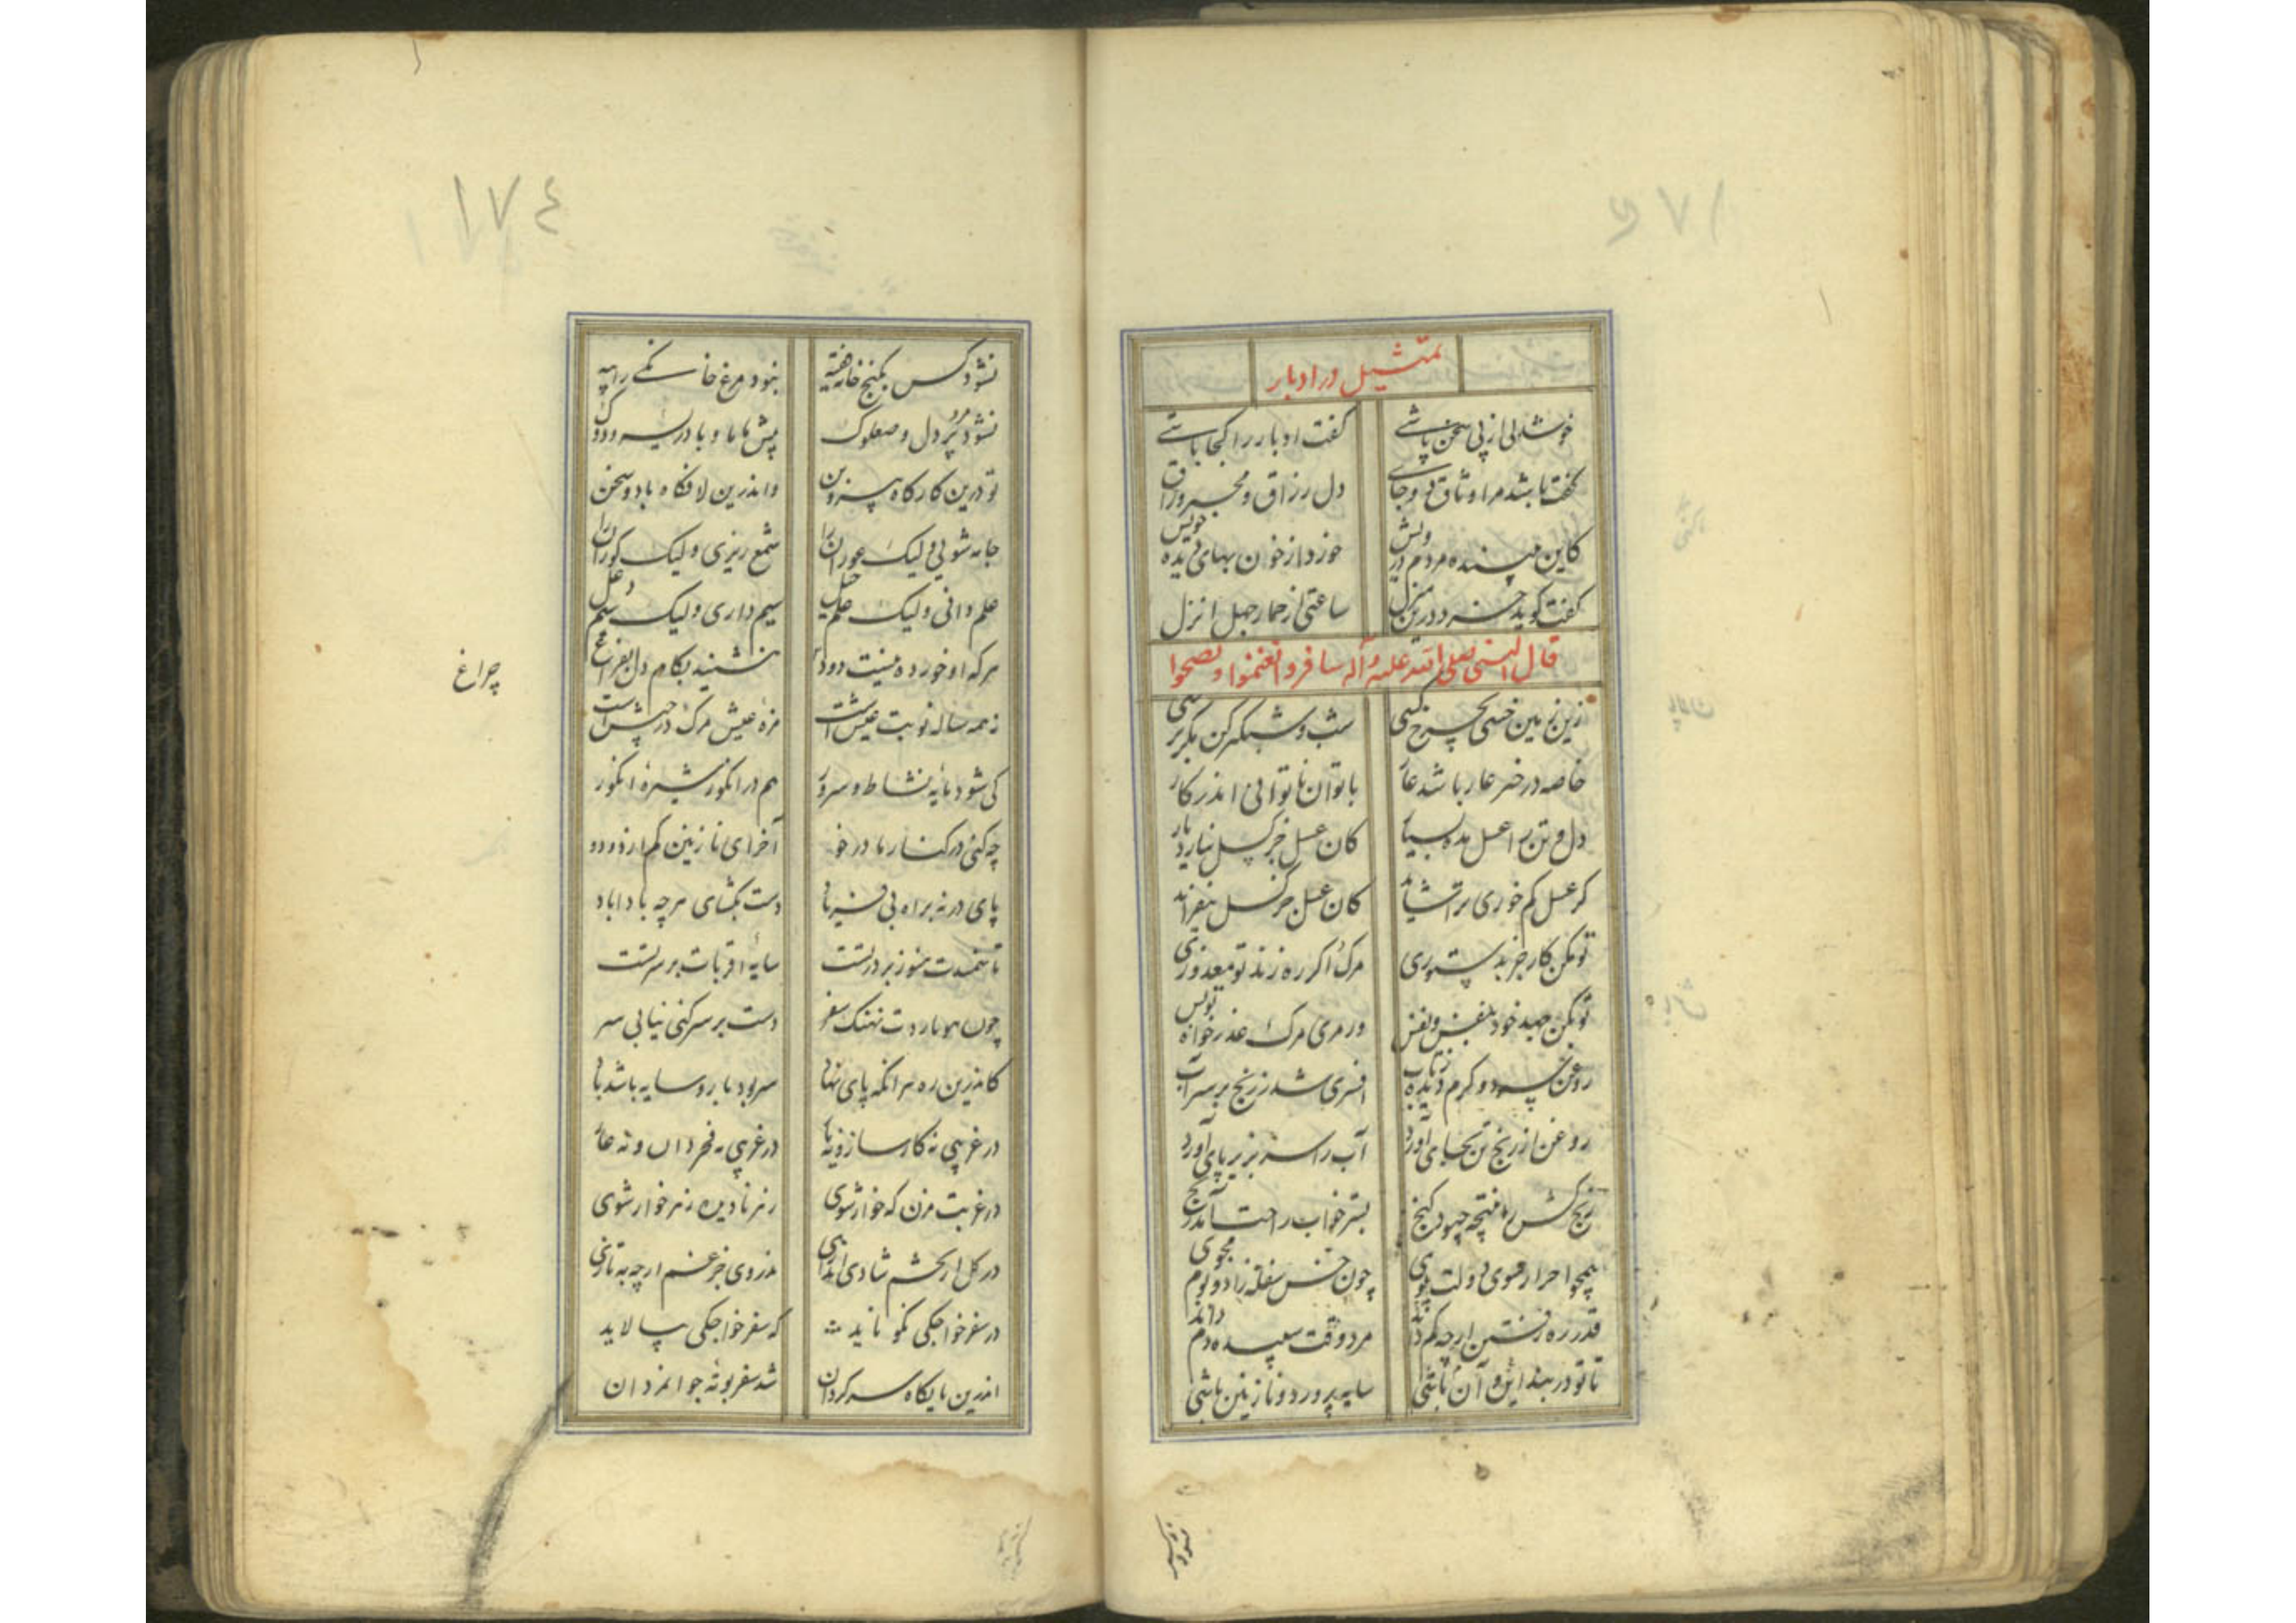 تمثیل در ادبار
خوشدلی از پی سخن پاشی گفت ادبار را کجا باشی
گفت باشد مرا وثاق دو جای دل رزاق و محبر وراق
کاین پسنده مردم درویش خورد از خون بهای دیده خویش
گفت کوید خرد درین منزل ساعتی از حمار جهل انزل
قال النبی صلی الله علیه وآله سافروا تغنموا و تصحوا
زین زمین خسی بچرخ کسی شب و شبگیر کن مگر برسی
خاصه در خر عار باشد عار با توان ناتوانی اندر کار
دل و تن را عسل مده بسیار کان عسل جز کسل نیارد بار
گر عسل کم خوری تراشاید کان عسل جز کسل نیفزاید
تو مکن کار جز بدستوری مرگ اگر ره زند تو معذوری
تو بکن جهد خود بنفس و نفس ور مری مرگ عذرخواه تو بس
روغن سرد و گرم دیده ز تاب افسری شد ز رنج بر سر آب
روغن از رنج تن بجای آورد آب را سر بزیر پای آورد
رنج کش را نتیجه چبود گنج بستر خواب راحت آمد رنج
همچو احرار سوی دولت پوی چون خس سفله زاد و بوم مجوی
قدر ره رفتن ارچه کم داند مرد وقت سپیده دم داند
تا تو در بند این و آن باشی سایه پرورد و نازنین باشی
نشود کس
١٧٤
نشود کس بکنج خانه فقیه نبود مرغ خانگی را پیه
نشود مرد پر دل و صعلوک پیش ماما و مادر سه و دوک
تو درین کارگاه بی سر و بن واندرین لافگاه باد و سخن
جامه شویی ولیک عوران را شمع ریزی ولیک کوران را
علم دانی ولیک علم حیل سیم داری ولیک سیم دغل
هرکه او خورده نیست دود چراغ ننشیند بکام دل بفراغ
ز همه ساله نوبت عیش است مزه عیش مرگ در پیش است
کی شود مایه نشاط و سرور هم در انگور شیره انگور
چه کنی در کنار مادر خو آخر ای نازنین کم از دو دو
پای در نه براه بی فریاد دست بگشای هرچه باداباد
تا هنوز بر در تست سایه اقربات بر سر تست
چون بیوباردت نهنگ سفر دست بر سر کنی نیابی سر
کاندرین ره هر آنکه پای نهاد سر بود بار و سایه باشد باد
در غریبی نه کار ساز و نه یار در غریبی نه فخر دان و نه عار
در غربت مزن که خوار شوی رنج نادیده رنج خوار شوی
در کل ار بخشم شادی اندازی ندروی جز غم ارچه به تازی
در سفر خواجگی نکو ناید که سفر خواجگی بپالاید
اندرین پایگاه سرگردان شد سفر بوته جوانمردان
چراغ